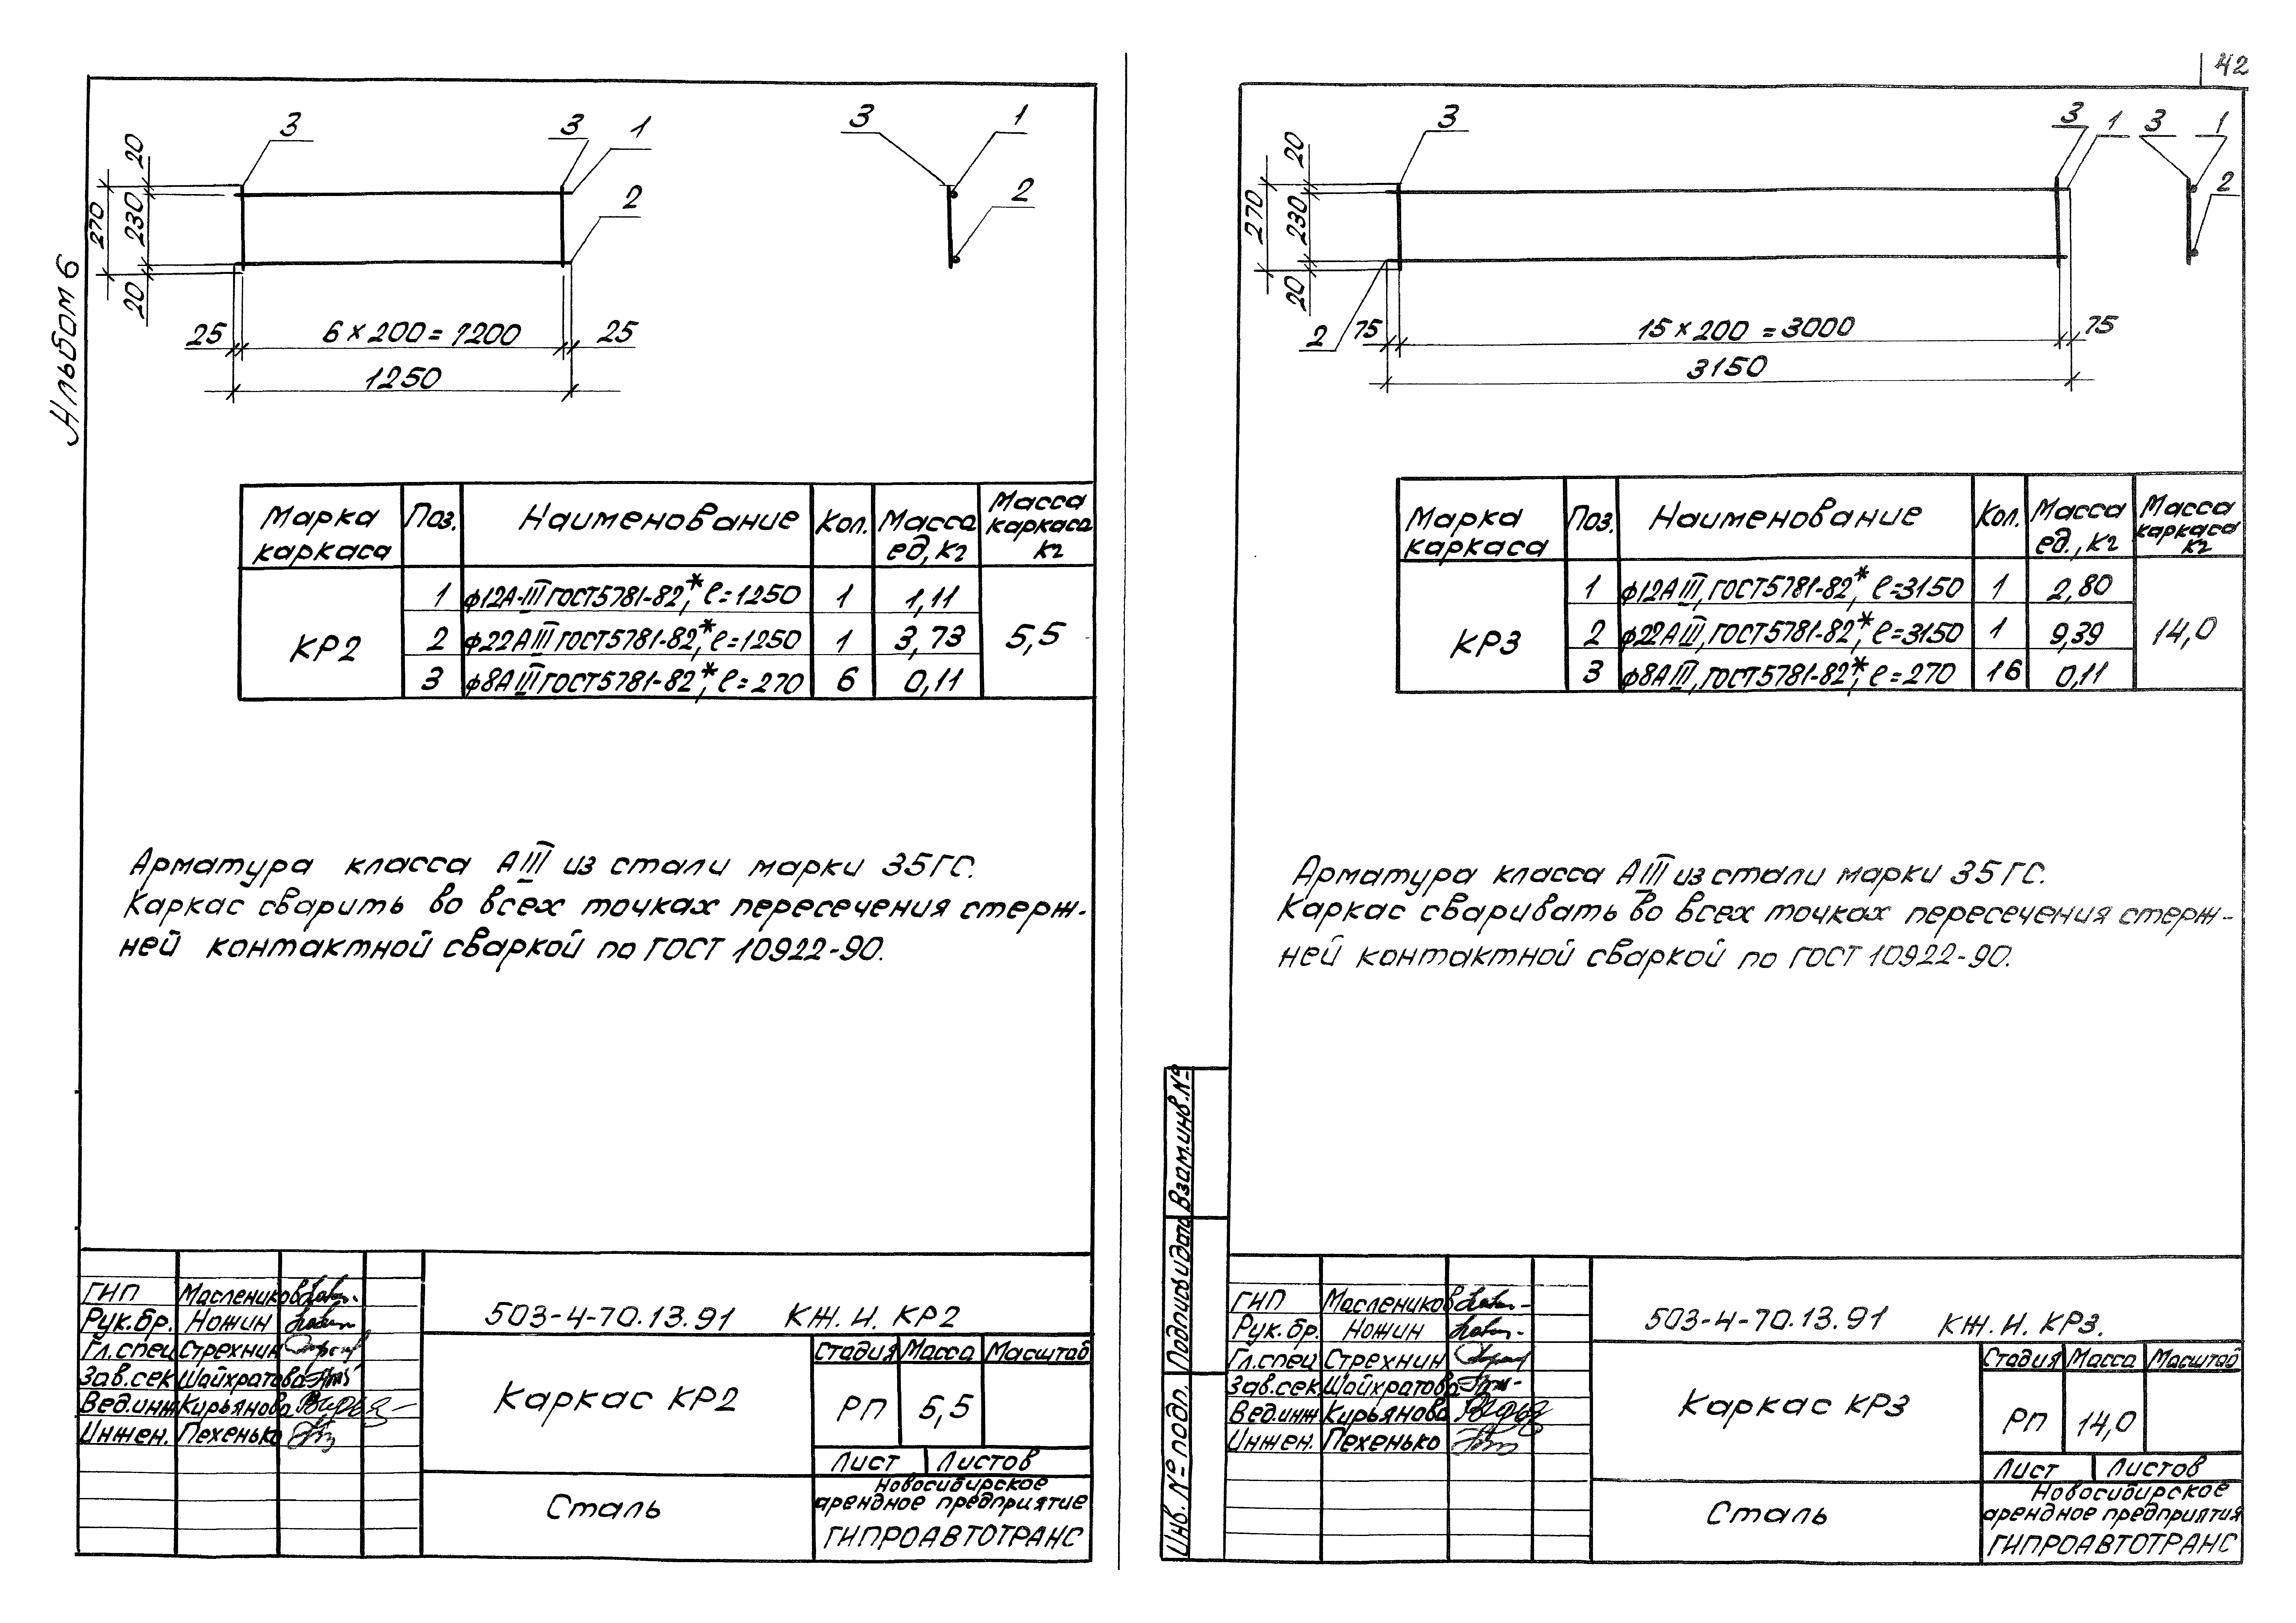 42
Альбом 6
3 3 1 3 1
2 2
20
270 230
20
25 6×200=1200 25
1250
Марка каркаса Поз. Наименование Кол. Масса ед, кг Масса каркаса кг
КР2
1 ф12А-III ГОСТ5781-82,* ℓ=1250 1 1,11
2 ф22АIII ГОСТ5781-82,* ℓ=1250 1 3,73 5,5
3 ф8АIII ГОСТ5781-82,* ℓ=270 6 0,11
Арматура класса АIII из стали марки 35ГС.
Каркас сварить во всех точках пересечения стерж-
ней контактной сваркой по ГОСТ 10922-90.
ГИП Маслеников
Рук.бр. Ножин
Гл.спец Стрехнин
Зав.сек Шайхратова
Вед.инж Кирьянова
Инжен. Пехенько
503-4-70.13.91 КЖ.И. КР2
Каркас КР2
Стадия Масса Масштаб
РП 5,5
Лист Листов
Сталь
Новосибирское
арендное предприятие
ГИПРОАВТОТРАНС
3 3 1 3 1
2
20
270 230
20
2 75 15×200=3000 75
3150
Марка каркаса Поз. Наименование Кол. Масса ед., кг Масса каркаса кг
КР3
1 ф12АIII, ГОСТ5781-82,* ℓ=3150 1 2,80
2 ф22АIII, ГОСТ5781-82,* ℓ=3150 1 9,39 14,0
3 ф8АIII, ГОСТ5781-82,* ℓ=270 16 0,11
Арматура класса АIII из стали марки 35ГС.
Каркас сваривать во всех точках пересечения стерж-
ней контактной сваркой по ГОСТ 10922-90.
Инв. № подл. Подпись и дата Взам.инв.№
ГИП Маслеников
Рук.бр. Ножин
Гл.спец Стрехнин
Зав.сек. Шайхратова
Вед.инж Кирьянова
Инжен. Пехенько
503-4-70.13.91 КЖ.И. КР3.
Каркас КР3
Стадия Масса Масштаб
РП 14,0
Лист Листов
Сталь
Новосибирское
арендное предприятия
ГИПРОАВТОТРАНС